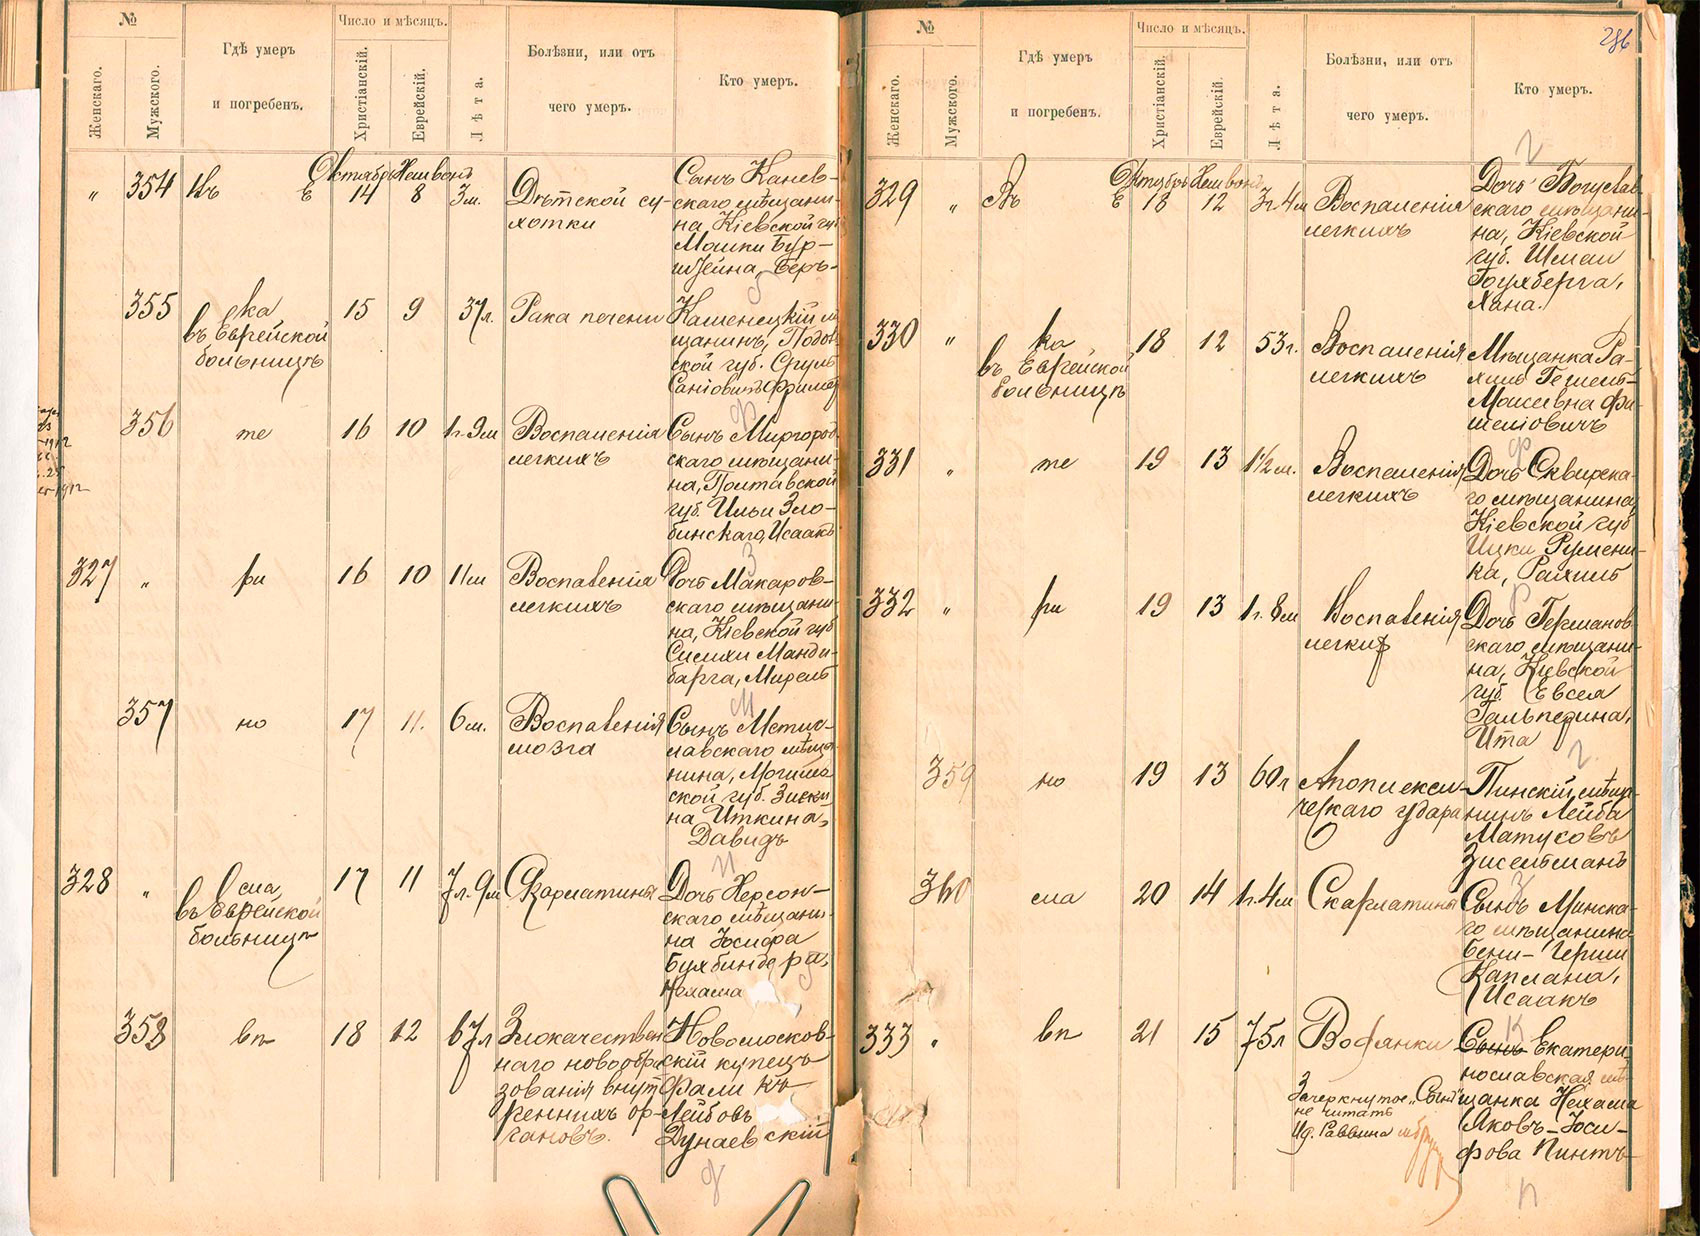 №
Число и мѣсяцъ.
Женскаго.
Мужского.
Гдѣ умеръ
и погребенъ.
Христіанскій.
Еврейскій.
Лѣта.
Болѣзни, или отъ
чего умеръ.
Кто умеръ.
Октябрь
"
354
Въ Е
14
8
3м.
Дѣтской су-
хотки
Сынъ Канев-
скаго мѣщани-
на, Кіевской губ
Мошки Бур-
штейна, Беръ
355
ка
въ Еврейской
больницѣ
15
9
37л.
Рака печени
Каменецкій мѣ
щанинъ, Подол
ской губ. Сруль
356
те
16
10
1г.9м
Воспаленія
легкихъ
Сынъ Миргород
скаго мѣщани-
на, Полтавской
губ. Ильи Зло-
бинскаго, Исаакъ
327
"
ри
16
10
11м
Воспаленія
легкихъ
Дочь Макаров-
скаго мѣщани-
на, Кіевской губ
Мирель
357
но
17
11.
6м.
Воспаленія
мозга
Сынъ Мстис-
лавскаго мѣща-
нина, Могилев
ской губ. Зиски
на Иткина,
Давидъ
328
"
сла
въ Еврейской
больницѣ
17
11
7л.9м
Скарлатины
Дочь Херсон-
скаго мѣщани-
на Іосифа
Бухбиндера,
Нехама
358
вп
18
12
67л
Злокачествен
наго новообра
зованія внут
реннихъ ор-
гановъ.
Новомосков-
скій купецъ
Лейбовъ
Дунаевскій
№
Число и мѣсяцъ.
236
Женскаго.
Мужского.
Гдѣ умеръ
и погребенъ.
Христіанскій.
Еврейскій.
Лѣта.
Болѣзни, или отъ
чего умеръ.
Кто умеръ.
329
"
Въ Е
18
12
3г.4м
Воспаленія
легкихъ
Дочь Богуслав
скаго мѣщани-
на, Кіевской
губ.
Хана.
330
"
ка
въ Еврейской
больницѣ
18
12
53г.
Воспаленія
легкихъ
Мѣщанка Ра-
хиль Гешель-
Моисеевна Фи-
шелговичъ
331
"
те
19
13
1½м.
Воспаленія
легкихъ
Дочь Сквирска-
го мѣщанина,
Кіевской губ
Ицки Румени-
ка, Рахиль
332
"
ри
19
13
1г.8м
Воспаленія
легких
Дочь Германов
скаго мѣщани-
на, Кіевской
губ. Евсея
Гальперина,
Ита
359
но
19
13
60л
Апоплекси-
ческаго удара
Пинскій мѣща-
нинъ Лейба
Матусовъ
Зисельманъ
360
сла
20
14
1г.4м
Скарлатины
Сынъ Минска-
го мѣщанина
Бени-Герши
Каплана,
Исаакъ
333
"
вп
21
15
75л
Водянки
Сынъ Екатери
нославская мѣ-
щанка Нехама
Яковъ-Іоси-
фова Пинтъ
Зачеркнутое "Сынъ"
не читать
Ид. Раввина